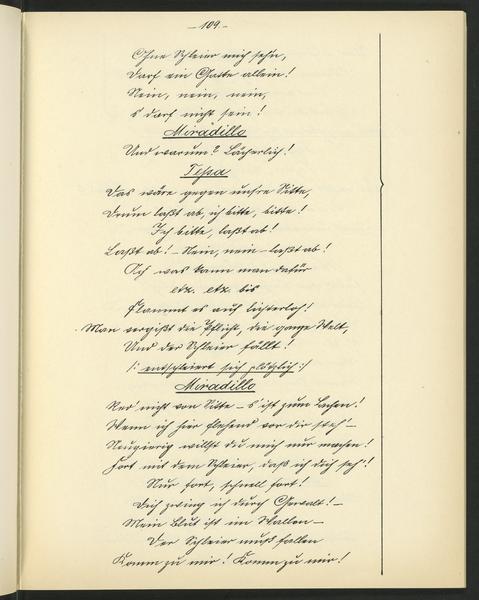 - 109. -
Ohne Schleier mich sehn,
Darf ein Gatte allein!
Nein, nein, nein,
s darf nicht sein!
Miradillo
Und warum? Lächerlich!
Tessa
Das wäre gegen unsre Sitte,
Drum laßt ab, ich bitte, bitte!
Ich bitte, laßt ab!
Laßt ab! - Nein, nein - laßt ab!
Ach was kann man dafür
etz. etz. bis
Flammt es auf lichterloh!
Man vergißt die Pflicht, die ganze Welt,
Und der Schleier fällt!
/: entschleiert sich plötzlich :/
Miradillo
Red' nicht von Sitte - s' ist zum Lachen!
Wenn ich hier flehend vor dir steh' -
Neugierig willst du mich nur machen!
Fort mit dem Schleier, daß ich dich seh'!
Nur fort, schnell fort!
Dich zwing ich durch Gewalt! -
Mein Blut ist im Wallen -
Der Schleier muß fallen
Komm zu mir! Komm zu mir!